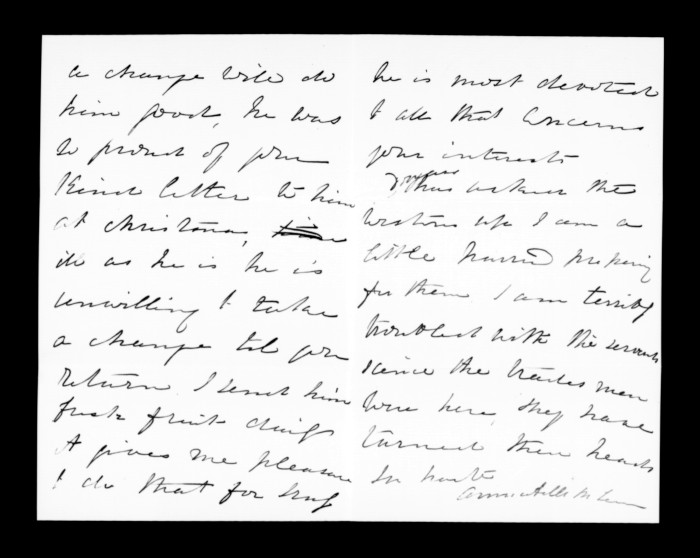 a change will do
him good, he was
so proud of your
kind letter to him
at christmas,
ill as he is he is
unwilling to take
a change til you
return I send him
fresh fruit daily
it gives me pleasure
to do that for
he is most devoted
to all that concerns
your interests
has asked the
up I am a
little hurried preparing
for them I am terribly
troubled with the servants
since the trades men
were here, they have
turned their heads
In haste